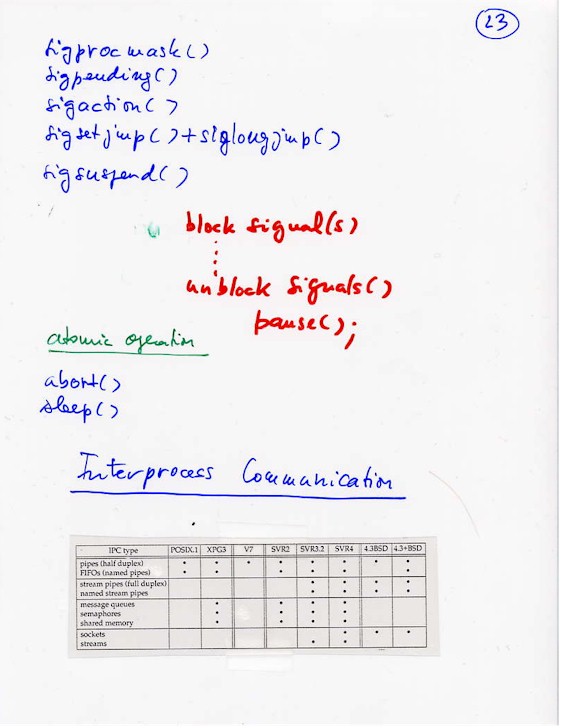 23
sigprocmask()
sigpending()
sigaction()
sigsetjmp()+siglongjmp()
sigsuspend()
block signal(s)
unblock signals()
pause();
atomic operation
abort()
sleep()
Interprocess Communication
IPC type POSIX.1 XPG3 V7 SVR2 SVR3.2 SVR4 4.3BSD 4.3+BSD
pipes (half duplex) • • • • • • • •
FIFOs (named pipes) • • • • • •
stream pipes (full duplex) • • • •
named stream pipes • • • •
message queues • • • •
semaphores • • • •
shared memory • • • •
sockets • • •
streams • •